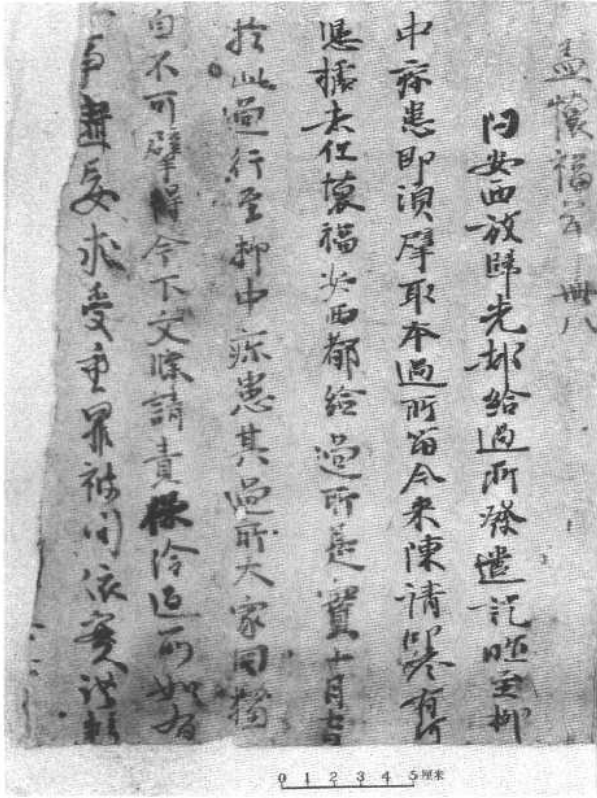 孟懷福年卌八
問安西放歸先都給過所發遣訖昨至柳
中疹患即須擘取本過所留今來陳請仰答有何
憑據者但懷福安西都給過所是實十月七日
於此過行至柳中疹患其過所大家同獨
自不可擘得今下文牒請責保給過所如有
一事虛妄求受重罪被問依實謹辯
0 1 2 3 4 5厘米